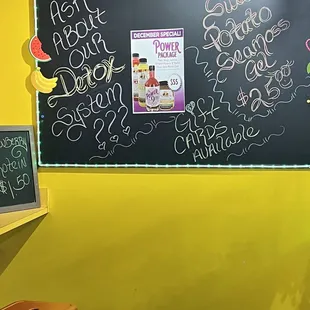 ASK
ABOUT
OUR
DETOX
SYSTEM
???
DECEMBER SPECIAL!
POWER
PACKAGE
$55
Potato
Seamoss
Gel
$25.00
Gift
CARDS
AVAILABLE
$1.50